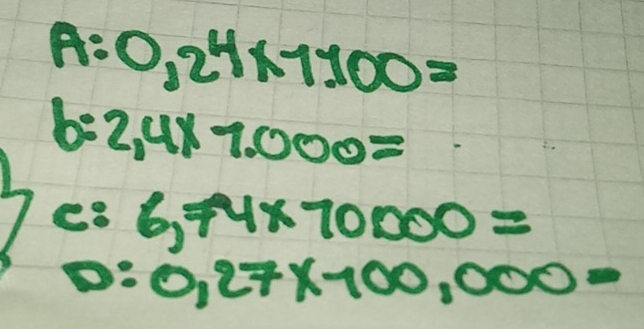 A: 0,24x1.100=
b: 2,4x 1.000=
c: 6,74x10000=
D: 0,27x100,000-